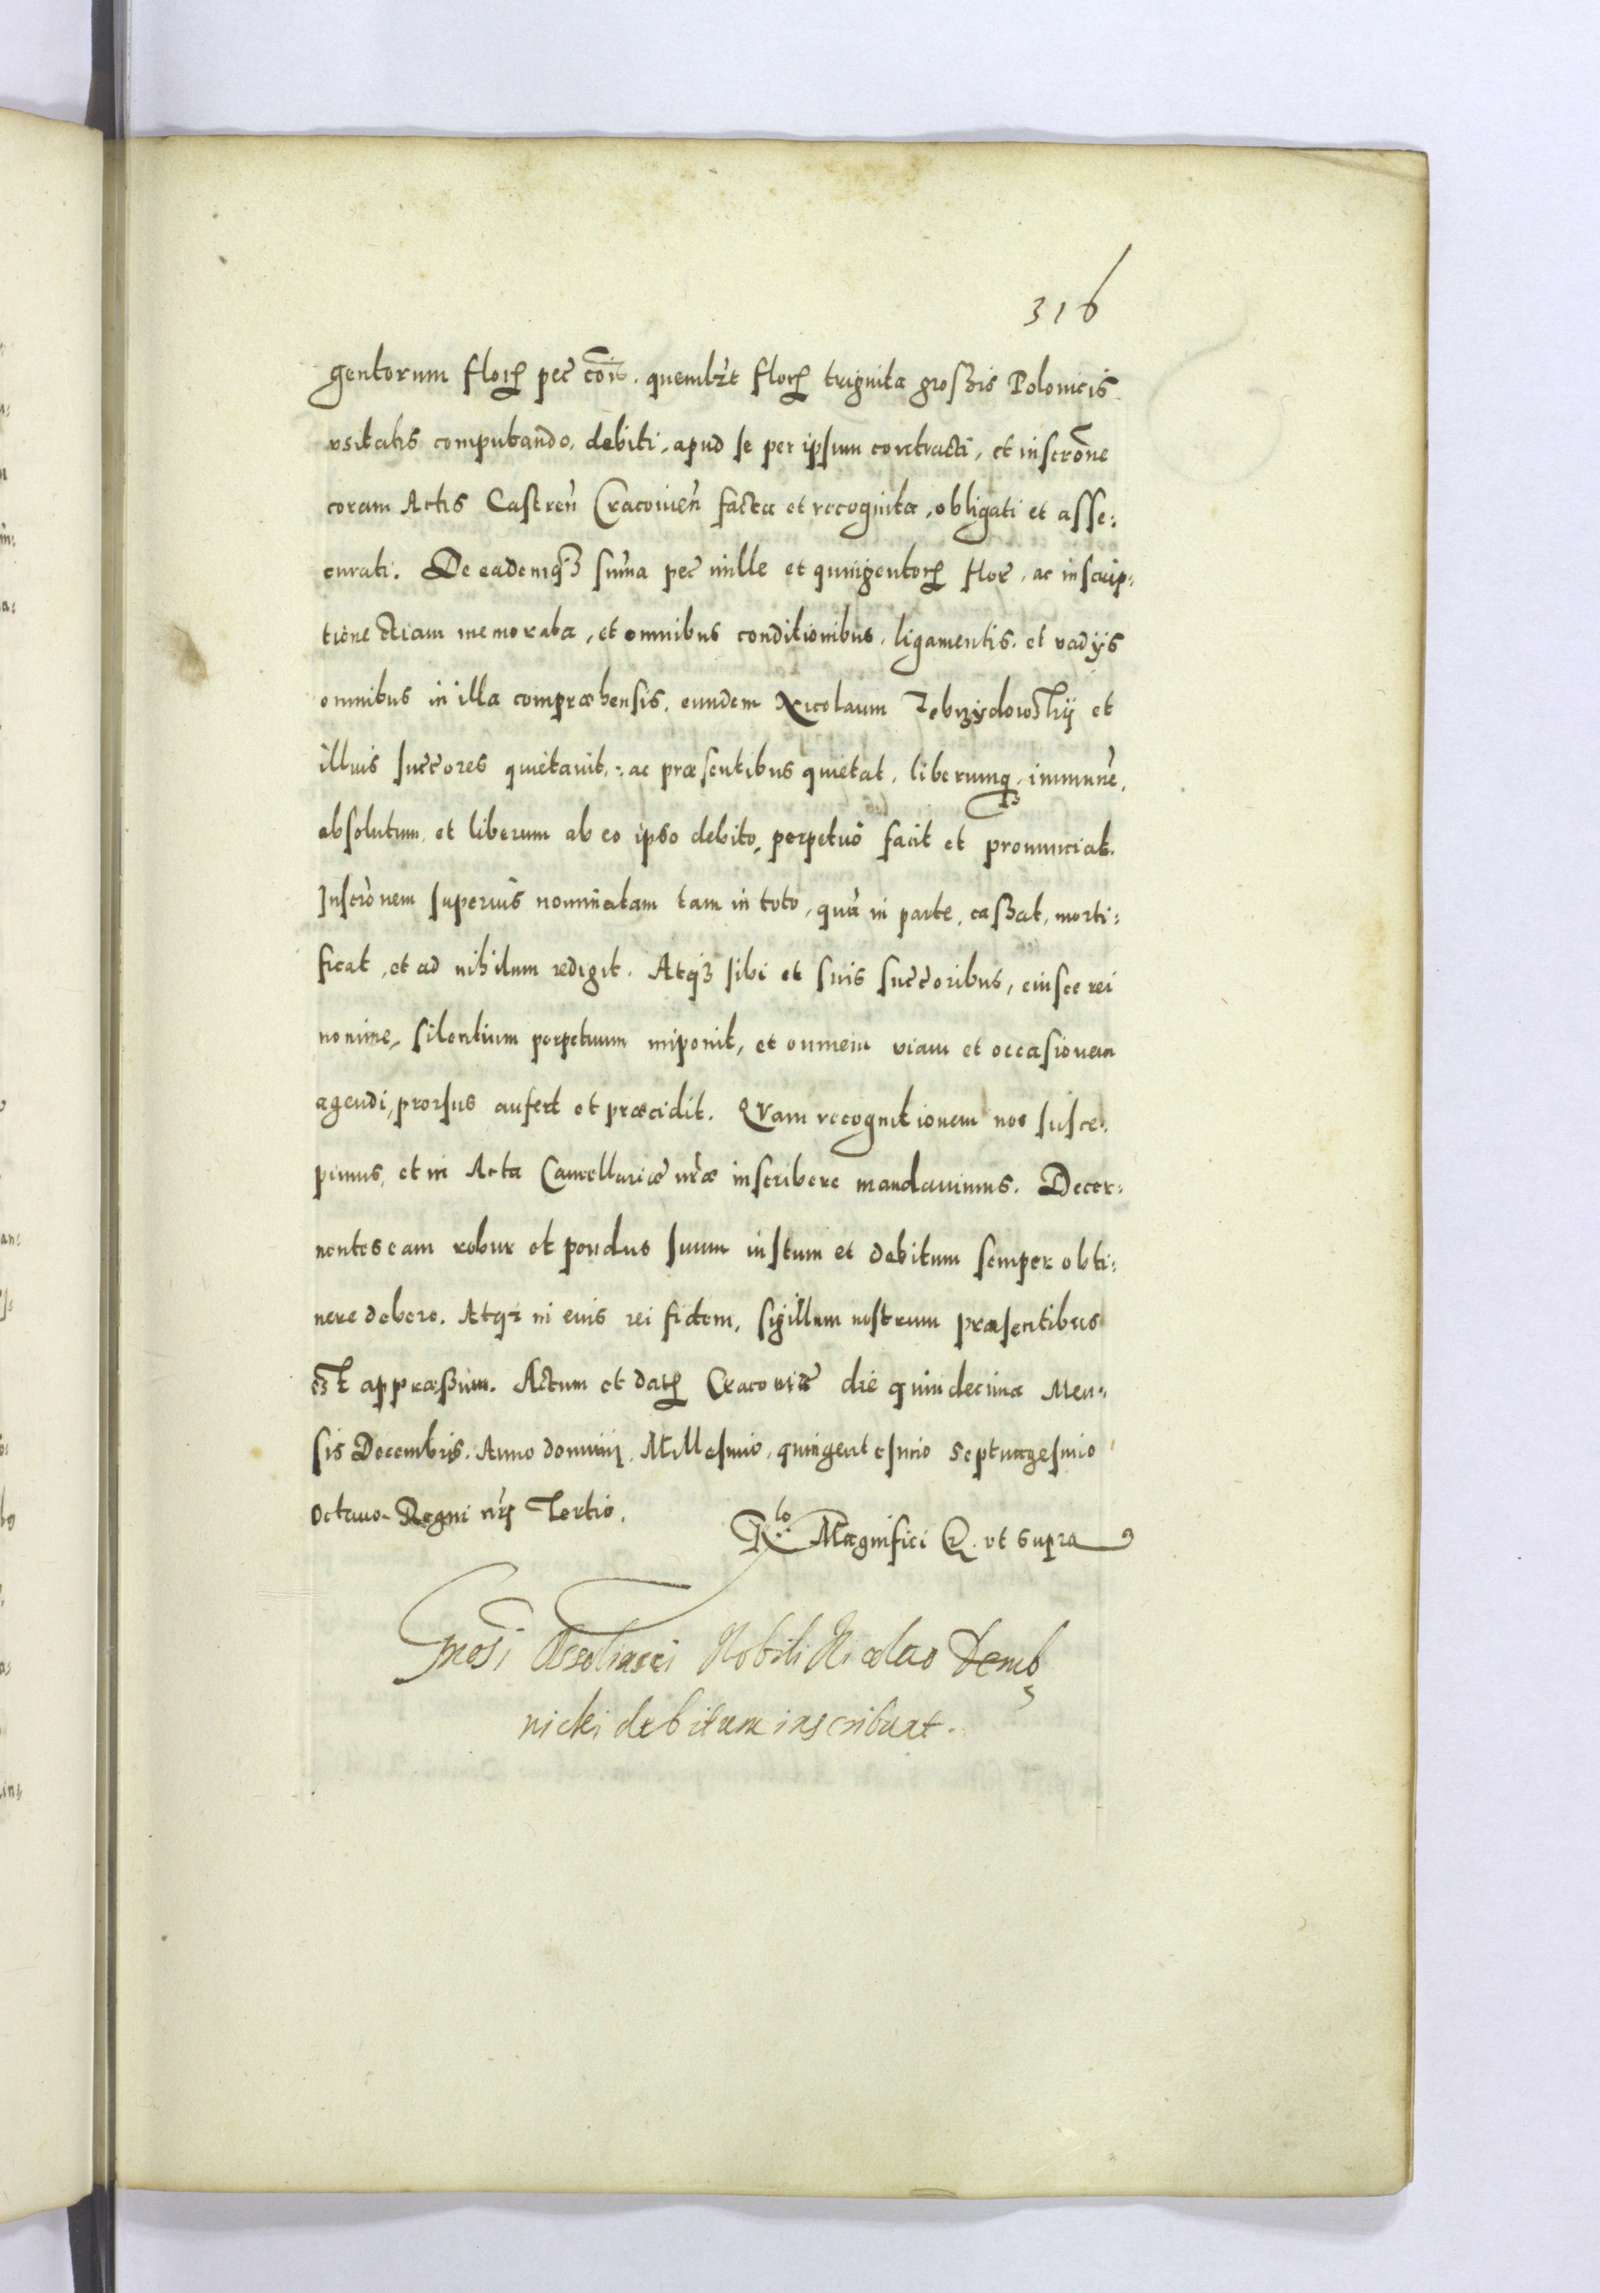 316
gentorum floꝝ pec̃ cõis. quemlꝫt floꝝ triginta großis Polonicis
vsitatis computando, debiti, apud se per ipsum contracti, et inscrõne
coram Actis Castreñ Cracovieñ facta et recognita, obligati et asse:
curati. De eademqꝫ sum̃a pec̃ mille et quingentoꝝ flor̃, ac inscrip:
tione etiam memorata, et omnibus conditionibus, ligamentis et vadÿs
omnibus in illa compræhensis, eundem Nicolaum Zebrzydowskÿ et
illius succ̃ores quietavit, ac præsentibus quietat, liberumqꝫ, immunẽ,
absolutum, et liberum ab eo ipso debito, perpetuò facit et pronunciat.
Inscrõnem superius nominatam tam in toto, quã in parte, caßat, morti:
ficat, et ad nihilum redigit. Atqꝫ sibi et suis succ̃oribus, eiusce rei
nomine, silentium perpetuum imponit, et omnem viam et occasionem
agendi, prorsus aufert et præcidit. QVam recognitionem nos susce:
pimus, et in Acta Cancellariæ nr̃æ inscribere mandavimus. Decer:
nentes eam robur et pondus suum iustum et debitum semper obti:
nere debere. Atqꝫ in eius rei fidem, sigillum nostrum præsentibus
est appræßum. Actum et datꝝ Cracoviæ die quindecima Men:
sis Decembris. Anno dominÿ. Millesimo, quingentesimo septuagesimo
octavo. Regni nr̃ÿ Tertio.
Rlo Magnifici &. vt supra
Grosi Nobili Nicolao Demb
nicki debitum inscribunt.